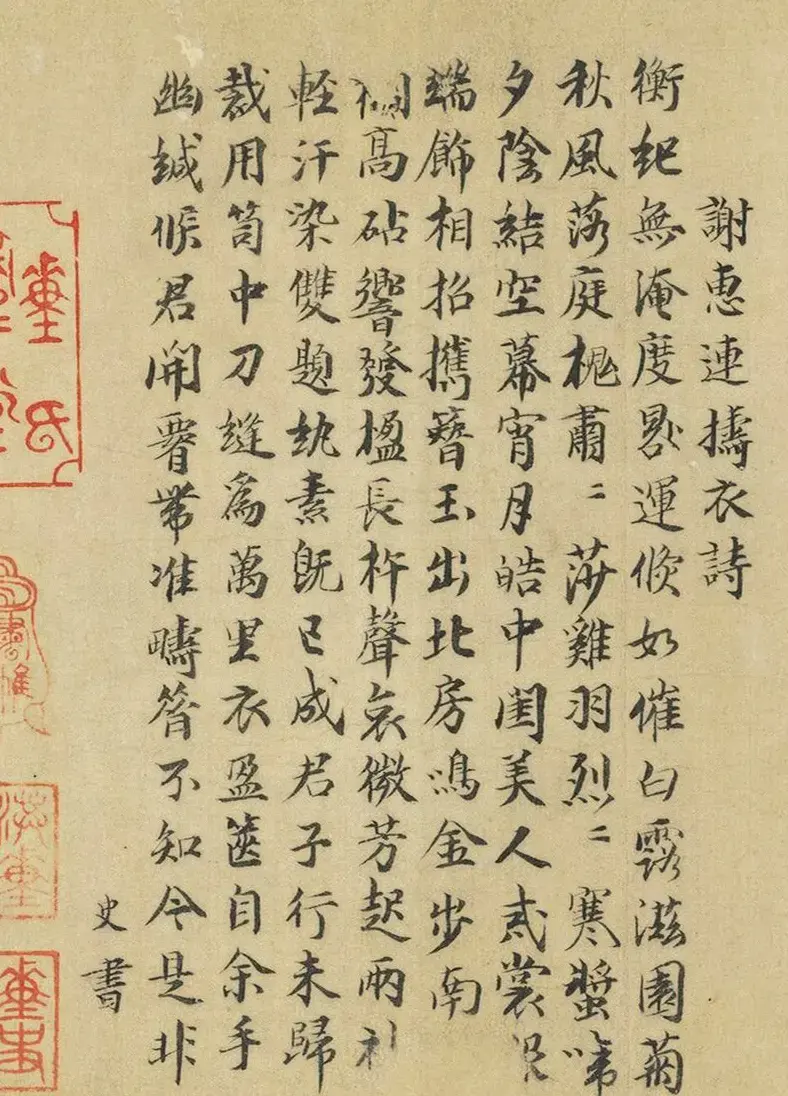 謝惠連擣衣詩
衡紀無淹度晷運倏如催白露滋園菊
秋風落庭槐肅〻莎雞羽烈〻寒螿啼
夕陰結空幕宵月皓中閨美人戒裳服
端飾相招攜簪玉出北房鳴金步南
高砧響發楹長杵聲哀微芳起兩
輕汗染雙題紈素既已成君子行未歸
裁用笥中刀縫為萬里衣盈篋自余手
幽緘候君開要帶准疇昔不知今是非
史書